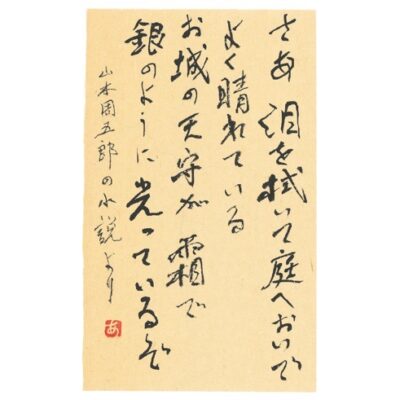 さあ 泪を拭いて庭へおいで
よく晴れている
お城の天守が霜で
銀のように光っているぞ
山本周五郎の小説より
あ